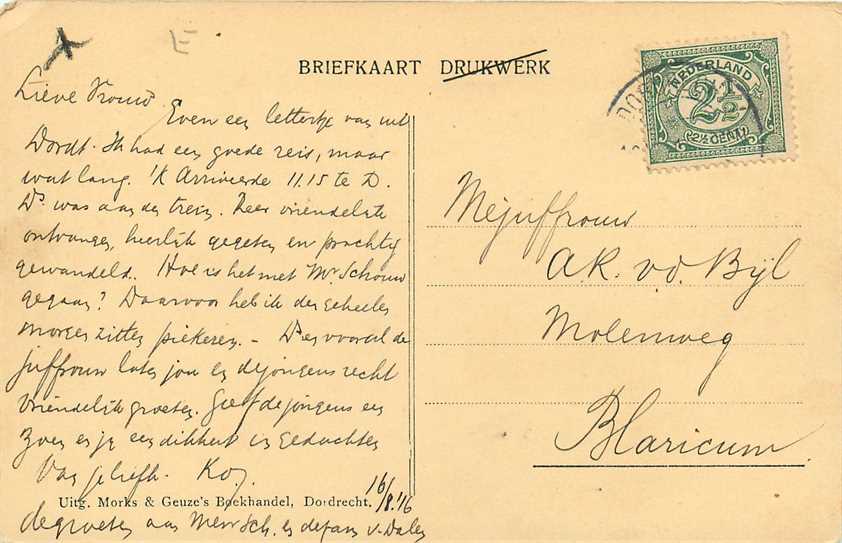 BRIEFKAART DRUKWERK
NEDERLAND
2½
2½ CENT
DOR
Lieve Vrouw
Even een lettertje van uit
Dordt. Ik had een goede reis, maar
wat lang. 'k Arriveerde 11.15 te D.
Ds. was aan den trein. Zeer vriendelijk
ontvangen, heerlijk gegeten en prachtig
gewandeld. Hoe is het met Mr. Schouw
gegaan? Daarvoor heb ik den geheelen
morgen zitten piekeren. – Ds en vooral de
juffrouw laten jou en de jongens recht
vriendelijk groeten. Geef de jongens een
zoen en je een dikkert in gedachten
Van je liefh. Ko.
16/8.'16
Uitg. Morks & Geuze's Boekhandel, Dordrecht.
de groeten aan Mevr Sch. en de fam v. Dalen
Mejuffrouw
A.K. v.d. Bijl
Molenweg
Blaricum